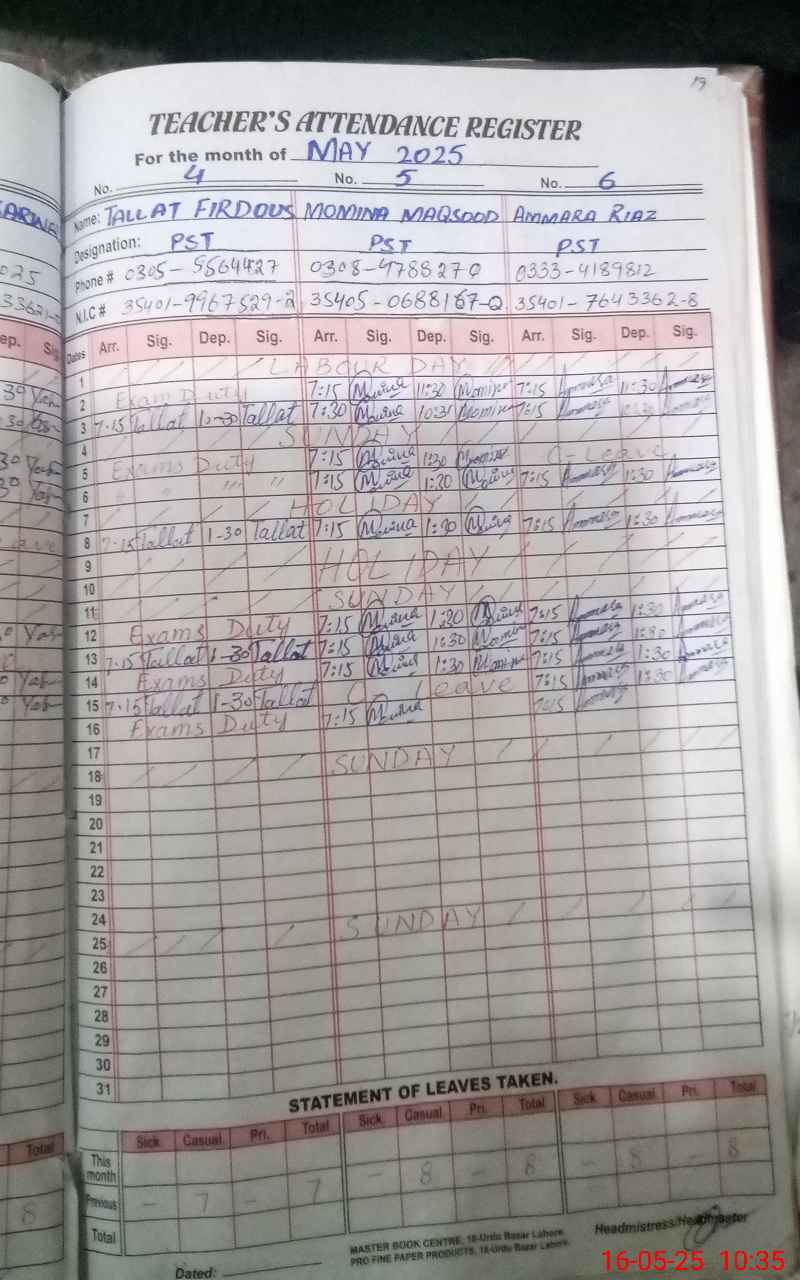 19
TEACHER'S ATTENDANCE REGISTER
For the month of MAY 2025
No. 4 No. 5 No. 6
Name: TALLAT FIRDOUS MOMINA MAQSOOD AMMARA RIAZ
Designation: PST PST PST
Phone # 0305-9564427 0308-4788270 0333-4189812
N.I.C # 35401-9967529-2 35405-0688167-0 35401-7643362-8
Dates Arr. Sig. Dep. Sig. Arr. Sig. Dep. Sig. Arr. Sig. Dep. Sig.
1 LABOUR DAY
2 Exam Duty 7:15 Momina 11:30 Momina 7:15 Ammara 11:30 Ammara
3 7-15 Tallat 10-30 Tallat 7:30 Momina 10:31 Momina 7:15 Ammara Ammara
4 SUNDAY
5 Exams Duty 7:15 Momina 1:30 Momina C-Leave
6 " " "" " 7:15 Momina 1:30 Momina 7:15 Ammara 1:30 Ammara
7 HOLIDAY
8 7-15 Tallat 1-30 Tallat 7:15 Momina 1:30 Momina 7:15 Ammara 1:30 Ammara
9 HOLIDAY
10
11 SUNDAY
12 Exams Duty 7:15 Momina 1:30 Momina 7:15 Ammara 1:30 Ammara
13 7-15 Tallat 1-30 Tallat 7:15 Momina 1:30 Momina 7:15 Ammara 1:30 Ammara
14 Exams Duty 7:15 Momina 1:30 Momina 7:15 Ammara 1:30 Ammara
15 7-15 Tallat 1-30 Tallat C- Leave 7:15 Ammara 1:30 Ammara
16 Exams Duty 7:15 Momina 7:15 Ammara
17
18 SUNDAY
19
20
21
22
23
24
25 SUNDAY
26
27
28
29
30
31
STATEMENT OF LEAVES TAKEN.
Sick Casual Pri. Total Sick Casual Pri. Total Sick Casual Pri. Total
This month
Previous - 7 - 7 - 8 - 8 - 8 - 8
Total
Dated:
MASTER BOOK CENTRE, 18-Urdu Bazar Lahore.
PRO FINE PAPER PRODUCTS, 18-Urdu Bazar Lahore.
Headmistress/Headmaster
16-05-25 10:35